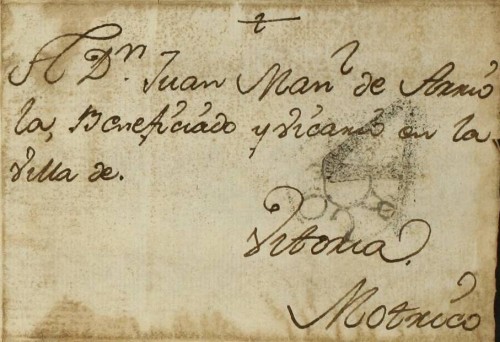 A Dn. Juan Manl de Arrio
la, Beneficiado y vicario en la
villa de.
Vitoria.
Motrico